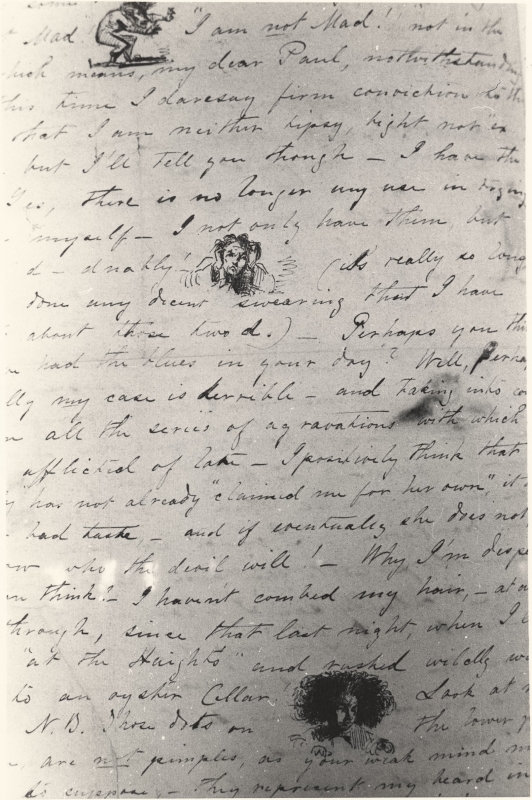 Mad. "I am not Mad!" not in the
means, my dear Paul, notwithstanding
this time I daresay firm conviction to the
that I am neither tipsy, tight nor "
but I'll tell you though — I have the
Yes, there is no longer any use in
"myself — I not only have them, but
d — dnably! (it's really so long
done any decent swearing that I have
about those two d.) — Perhaps you
had the blues in your day? Well,
my case is terrible — and taking into
all the series of agravations with which
afflicted of late — I positively think that
has not already "claimed me for her own", it
bad taste, — and if eventually she does not
who the devil will! — Why I'm
think? — I haven't combed my hair, — at
through, since that last night, when I
"at the Heights" and rushed wildly
to an oyster Cellar! Look at
N.B. Those dots on the lower
are not pimples, as your weak mind
to suppose, — They represent my beard in